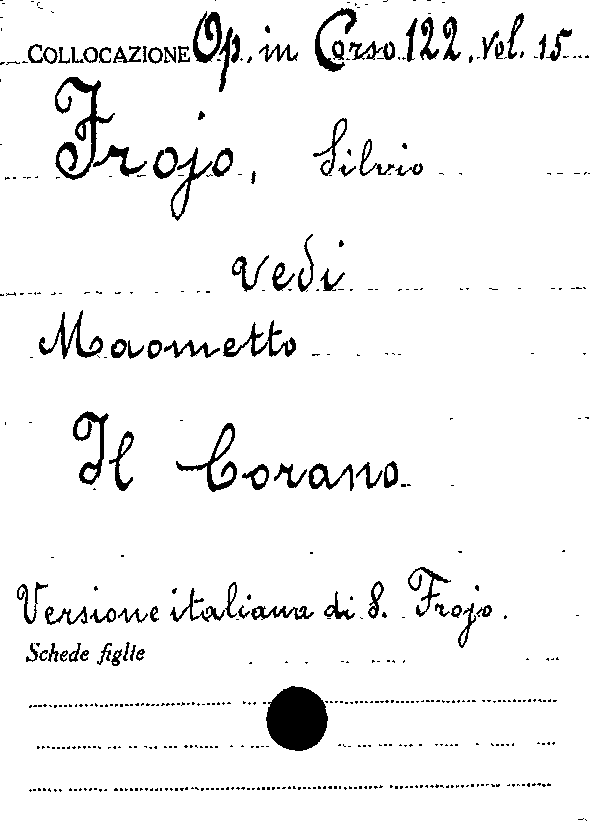 COLLOCAZIONE Op. in Corso 122, vol. 15
Frojo, Silvio
vedi
Maometto
Il Corano
Versione italiana di S. Frojo.
Schede figlie